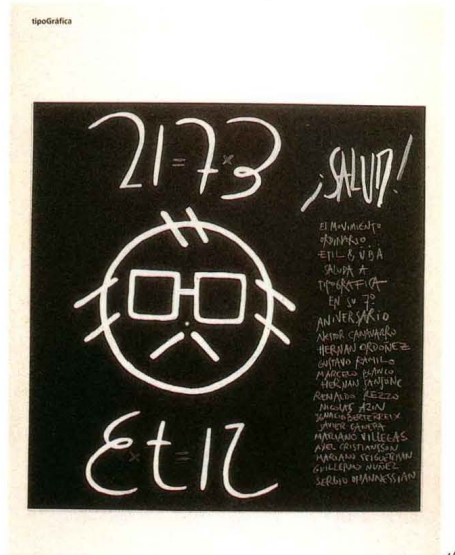 tipoGráfica
21=7×3
¡SALUD!
El MOVIMIENTO
ORDINARIO
ETIL & UBA
SALUDA A
TIPOGRAFICA
EN SU 7º
ANIVERSARIO
NESTOR CANAVARRO
HERNAN ORDOÑEZ
GUSTAVO RAMILO
MARCELO BLANCO
HERNAN SANSONE
RENALDO REZZO
NICOLAS AZIN
IGNACIO
JAVIER CANEPA
MARIANO VILLEGAS
AXEL CRISTIANSSON
MARIANO
GUILLERMO NUÑEZ
SERGIO MANNESSIAN